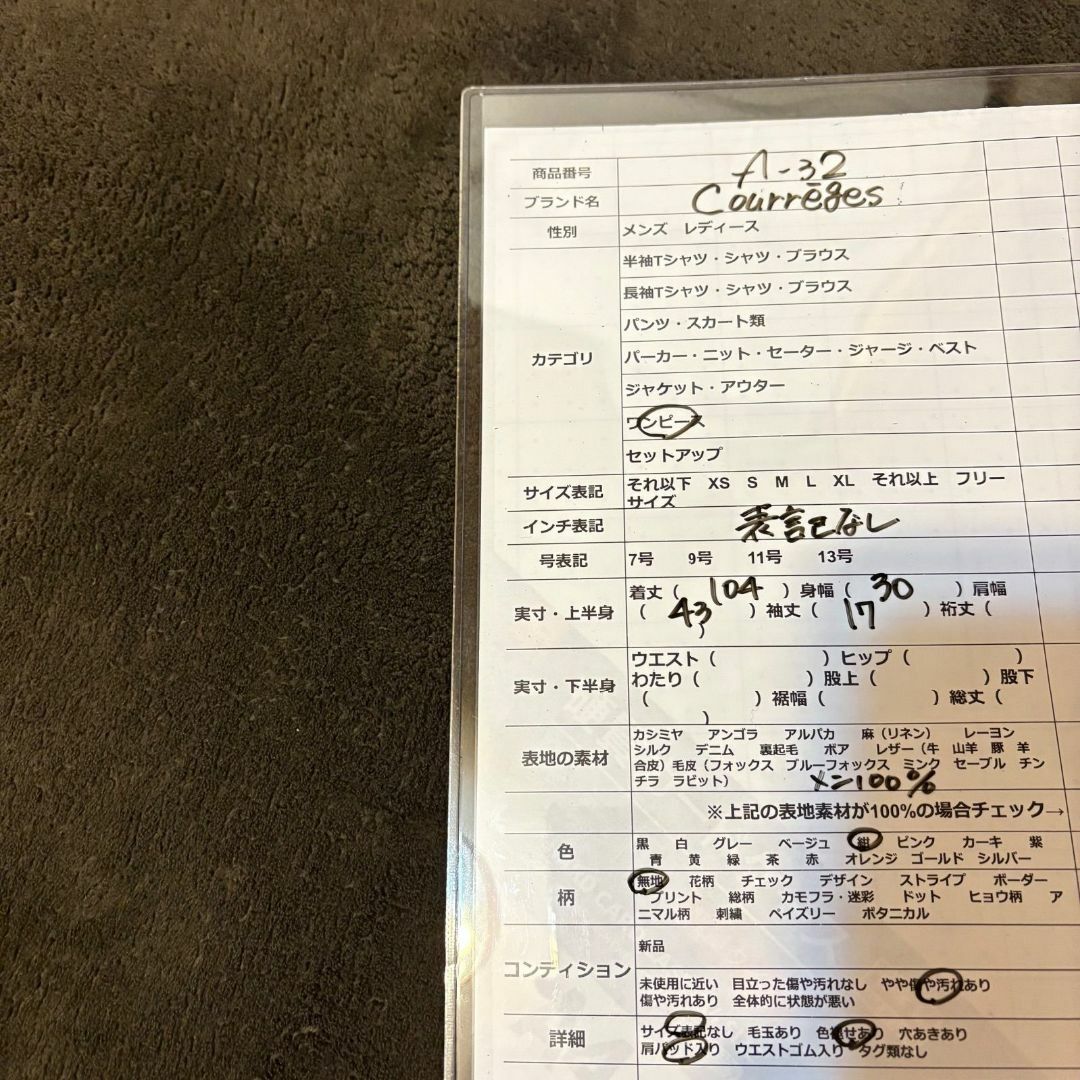 商品番号 A-32
ブランド名 Courrēges
性別 メンズ レディース
カテゴリ
半袖Tシャツ・シャツ・ブラウス
長袖Tシャツ・シャツ・ブラウス
パンツ・スカート類
パーカー・ニット・セーター・ジャージ・ベスト
ジャケット・アウター
ワンピース
セットアップ
サイズ表記 それ以下 XS S M L XL それ以上 フリー
サイズ
インチ表記 表記なし
号表記 7号 9号 11号 13号
実寸・上半身 着丈（ 104 ）身幅（ 30 ）肩幅
（ 43 ）袖丈（ 17 ）裄丈（
）
実寸・下半身 ウエスト（ ）ヒップ（ ）
わたり（ ）股上（ ）股下
（ ）裾幅（ ）総丈（
）
表地の素材 カシミヤ アンゴラ アルパカ 麻（リネン） レーヨン
シルク デニム 裏起毛 ボア レザー（牛 山羊 豚 羊
合皮）毛皮（フォックス ブルーフォックス ミンク セーブル チン
チラ ラビット） メン100%
※上記の表地素材が100%の場合チェック→
色 黒 白 グレー ベージュ 紺 ピンク カーキ 紫
青 黄 緑 茶 赤 オレンジ ゴールド シルバー
柄 無地 花柄 チェック デザイン ストライプ ボーダー
プリント 総柄 カモフラ・迷彩 ドット ヒョウ柄 ア
ニマル柄 刺繍 ペイズリー ボタニカル
コンディション 新品
未使用に近い 目立った傷や汚れなし やや傷や汚れあり
傷や汚れあり 全体的に状態が悪い
詳細 サイズ表記なし 毛玉あり 色褪せあり 穴あきあり
肩パッド入り ウエストゴム入り タグ類なし